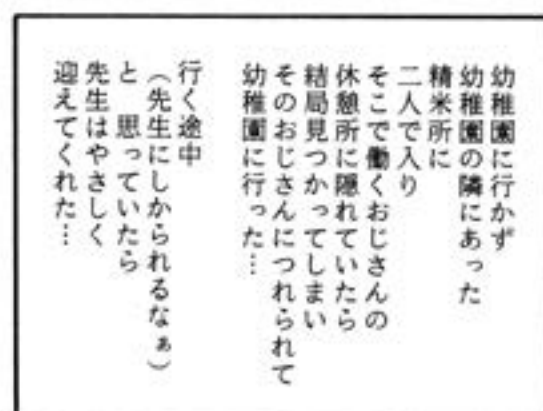 幼稚園に行かず
幼稚園の隣にあった
精米所に
二人で入り
そこで働くおじさんの
休憩所に隠れていたら
結局見つかってしまい
そのおじさんにつれられて
幼稚園に行った…
行く途中
（先生にしかられるなぁ）
と　思っていたら
先生はやさしく
迎えてくれた…